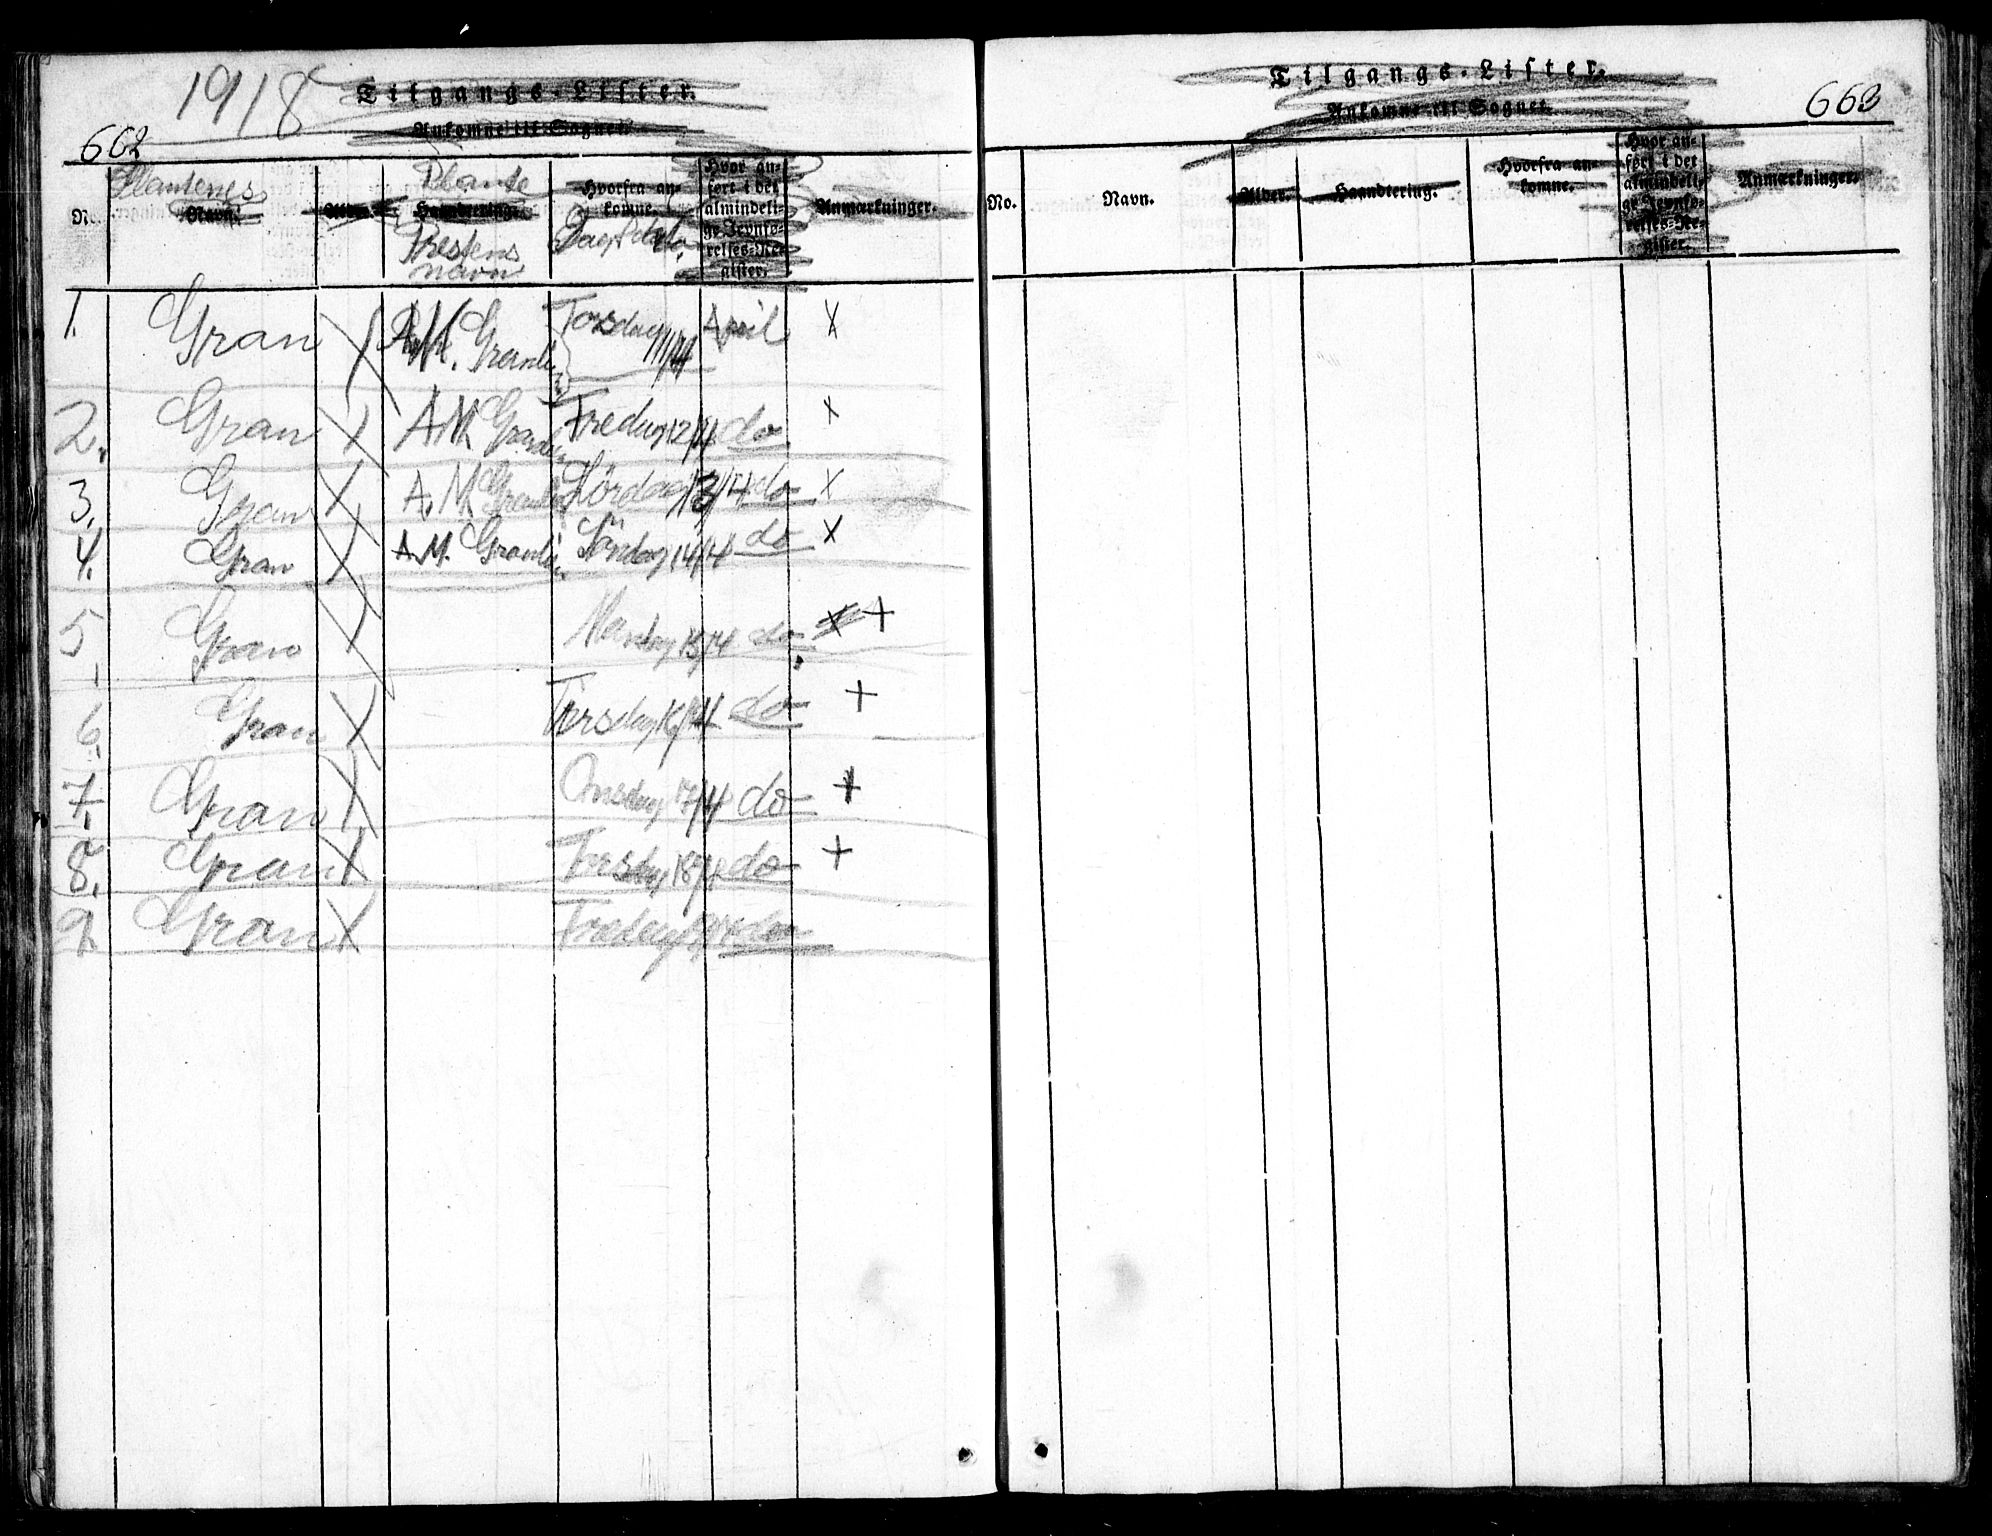 1918
Tilgangs-Lister.
Ankomne til Sognet.
662
No.
Plantenes
Navn.
Alder.
Plante
Haandtering.
Prestens
navn
Hvorfra an-
komne.
Dag & dato
Hvor an-
ført i det
almindeli-
ge Jevnfø-
relses-Re-
gister.
Anmærkninger.
1. Gran A.M. Granli Torsdag 11/4 April X
2. Gran A.M Granli Fredag 12/4 do X
3. Gran A.M Granli Lördag 13/4 do X
4. Gran A.M. Granli Söndag 14/4 do X
5. Gran Mandag 15/4 do. +
6. Gran Tirsdag 16/4 do +
7. Gran Onsdag 17/4 do +
8. Gran Torsdag 18/4 do +
9. Gran Fredag 19/4 do
Tilgangs-Lister.
Ankomne til Sognet.
663
No.
Navn.
Alder.
Haandtering.
Hvorfra an-
komne.
Hvor an-
ført i det
almindeli-
ge Jevnfø-
relses-Re-
gister.
Anmærkninger.